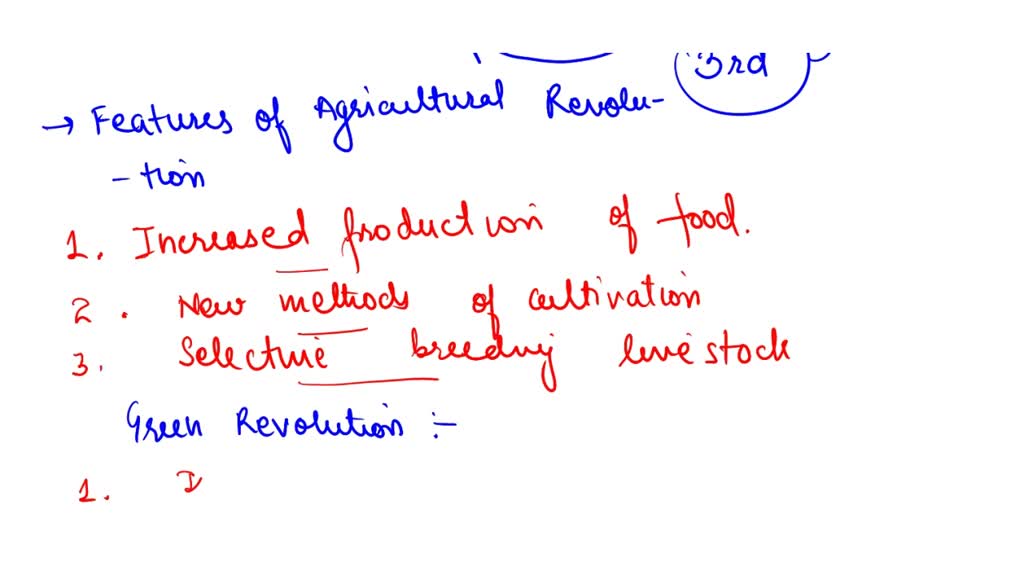 3rd
→ Features of Agricultural Revolu-
-tion
1. Increased production of food.
2. New methods of cultivation
3. Selective breeding livestock
Green Revolution :-
1. I